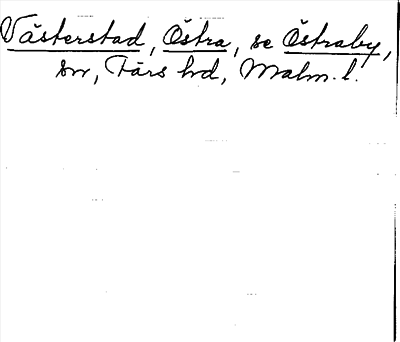 Västerstad, Östra, se Östraby,
sn, Färs hd, Malm. l.